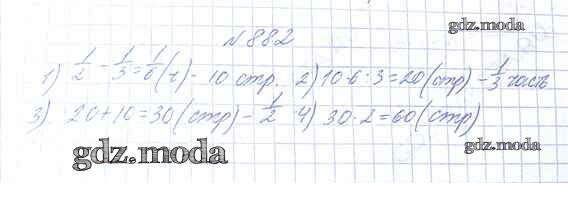 gdz.moda
N 882
1) 1/2 - 1/3 = 1/6 (ч) - 10 стр. 2) 10·6:3=20 (стр) - 1/3 часть
3) 20+10=30 (стр) - 1/2 4) 30·2=60 (стр)
gdz.moda gdz.moda